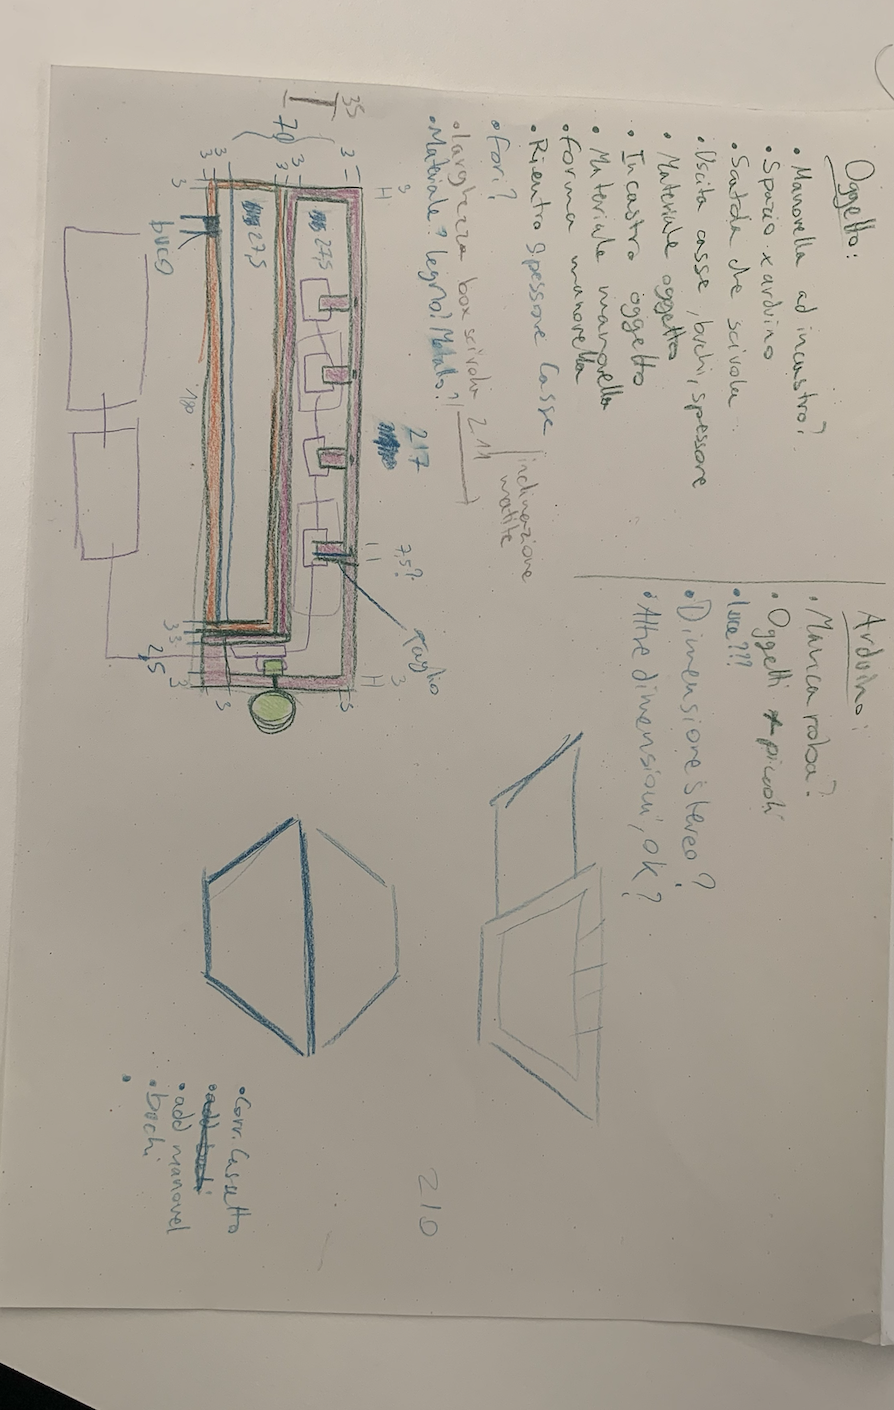 Oggetto:
• Manovella ad incastro?
• Spazio x arduino
• Scatola che scivola
• Uscita casse, buchi, spessore
• Materiale oggetto
• Incastro oggetto
• Materiale manovella
• forma manovella
• Rientro spessore casse
• fori?
• larghezza box scivolo 211
• Materiale? legno? Metallo?
inclinazione
matite
Arduino:
• Manca roba?
• Oggetti + piccoli
• luce???
• Dimensione stereo?
• Altre dimensioni, ok?
35
70
3
3
3
3
3
3
3
217
7,5?
3
275
275
buco
180
Taglio
3
3
2,5
3
3
3
• Corr. Cassetto
• add manovel
• buchi
210